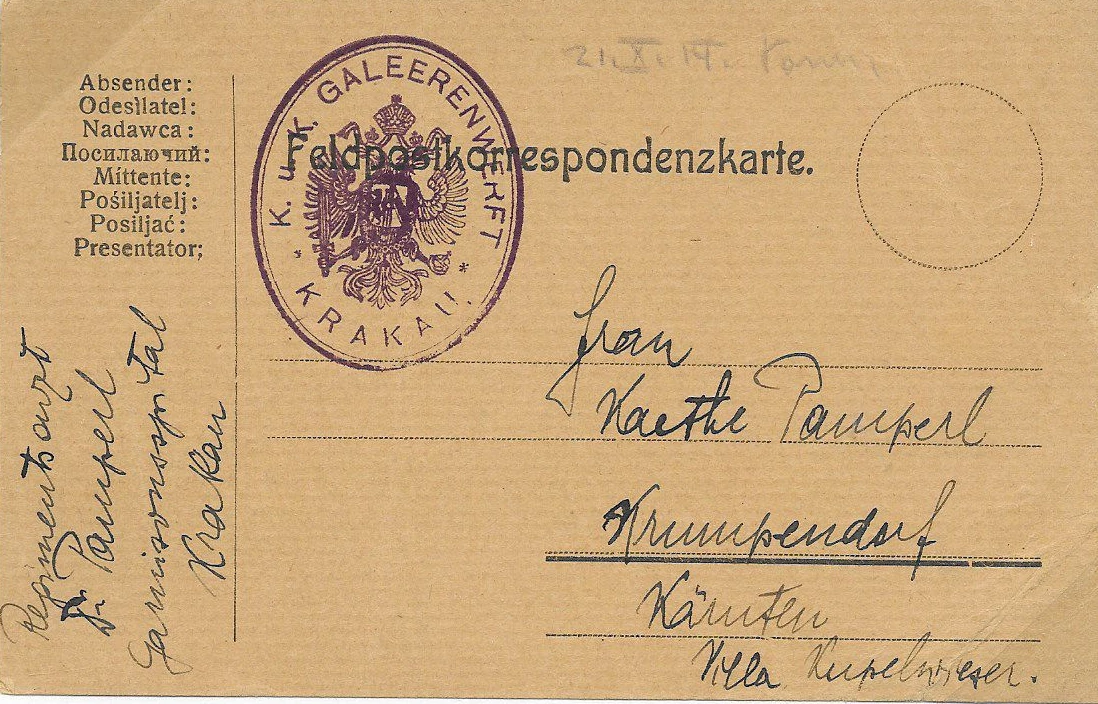 21. X. 14.
Absender:
Odesilatel:
Nadawca:
Посилаючий:
Mittente:
Pošiljatelj:
Posiljać:
Presentator;
K. u. K. GALEERENWERFT
* KRAKAU. *
Feldpostkorrespondenzkarte.
Regimentsarzt
Dr Pamperl
Garnisonsspital
Krakau
Frau
Kaethe Pamperl
Krumpendorf
Kärnten
Villa Kupelwieser.